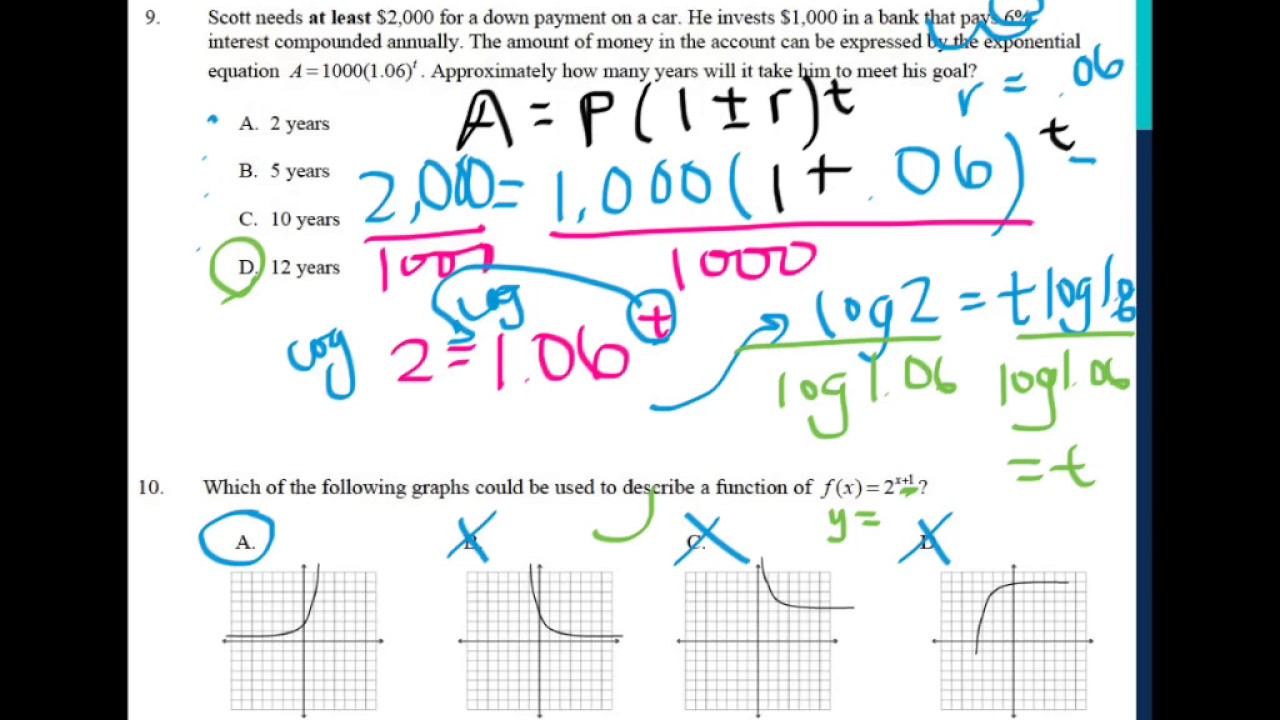 9. Scott needs at least $2,000 for a down payment on a car. He invests $1,000 in a bank that pays 6%
interest compounded annually. The amount of money in the account can be expressed by the exponential
equation A=1000(1.06)^t. Approximately how many years will it take him to meet his goal?
r = .06
A = P(1±r)^t
A. 2 years
2,000 = 1,000(1 + .06)^t
B. 5 years
C. 10 years
1000 1000
D. 12 years
log
log 2 = 1.06^t
log2 = t log
log1.06 log1.06
= t
10. Which of the following graphs could be used to describe a function of f(x)=2^{x+1}?
y =
A.
C.